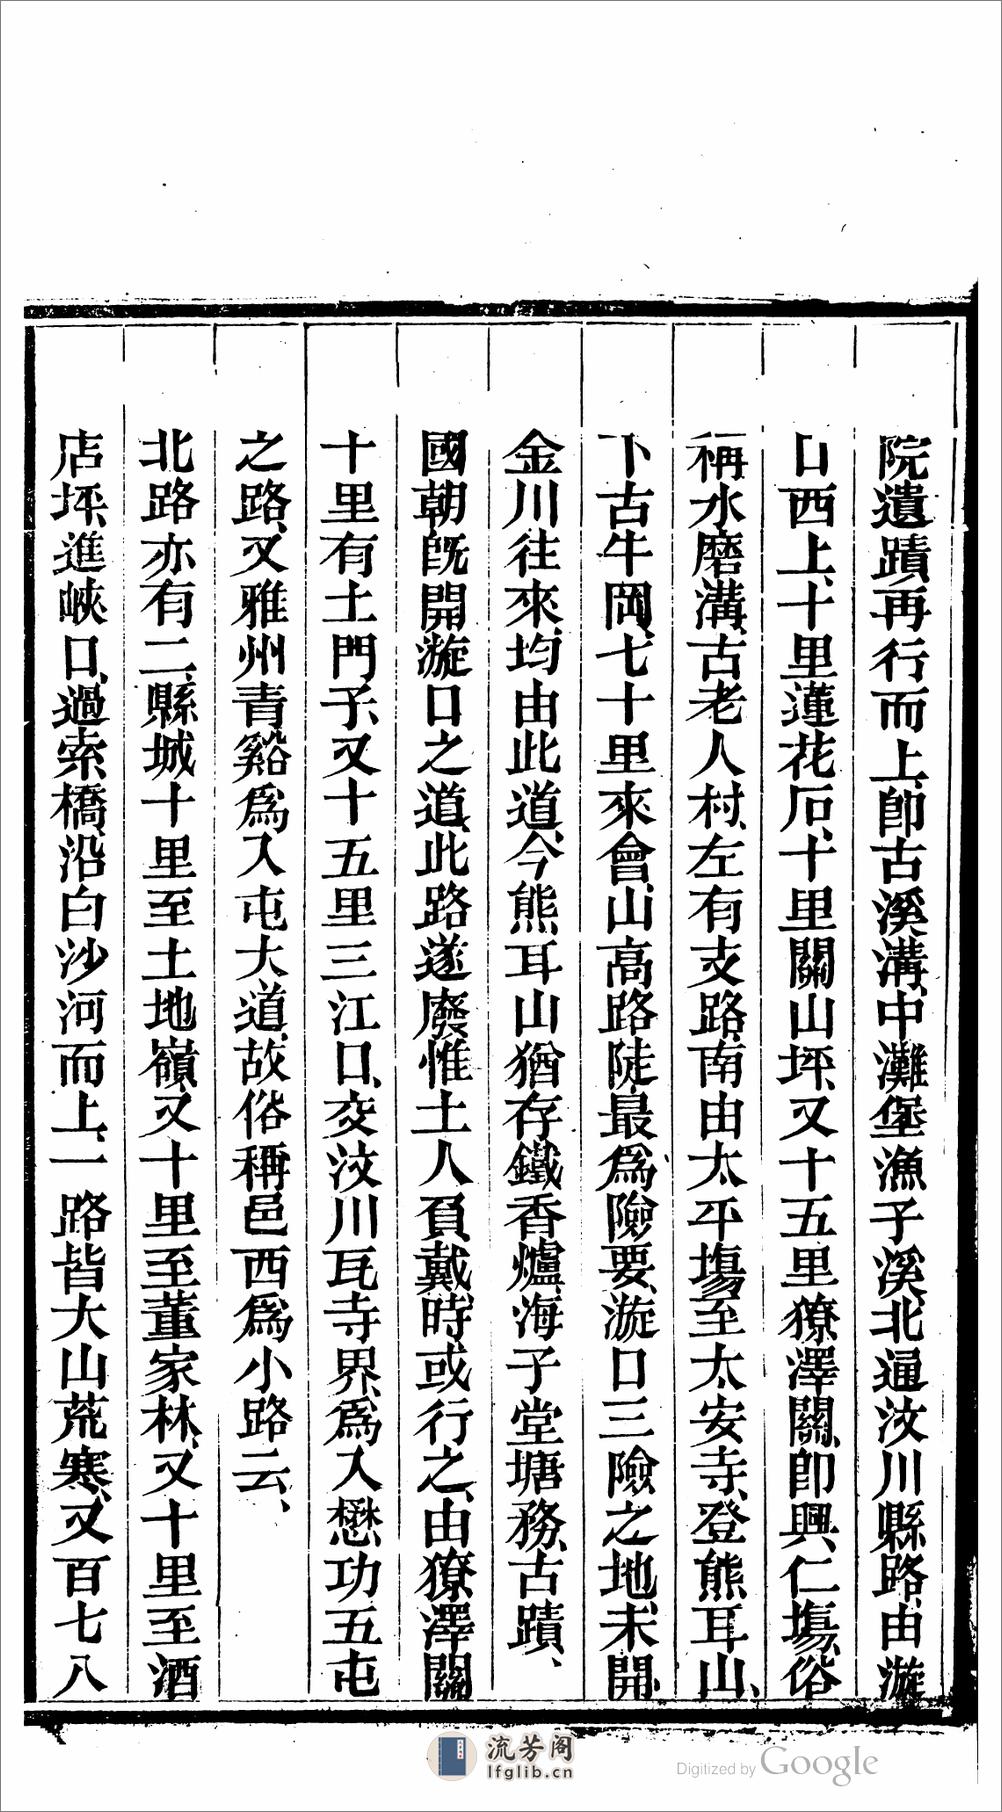 院遺蹟、再行而上、卽古溪溝、中灘堡、漁子溪、北通汶川縣路、由漩
口西上、十里蓮花石、十里關山坪、又十五里獠澤關、卽興仁塲、俗
稱水磨溝、古老人村、左有支路、南由太平塲至太安寺、登熊耳山、
卜古牛岡、七十里來會、山高路陡、最爲險要、漩口三險之地、未開
金川往來、均由此道、今熊耳山猶存鐵香爐、海子堂塘務、古蹟、
國朝旣開漩口之道、此路遂廢、惟土人負戴、時或行之、由獠澤關
十里有土門子、又十五里三江口、交汶川瓦寺界、爲入懋功五屯
之路、又雅州青谿爲入屯大道、故俗稱邑西爲小路云、
北路亦有二、縣城十里至土地嶺、又十里至董家林、又十里至酒
店坪、進峽口、過索橋、沿白沙河而上、一路皆大山荒寒、又百七八
流芳阁
lfglib.cn
Digitized by Google